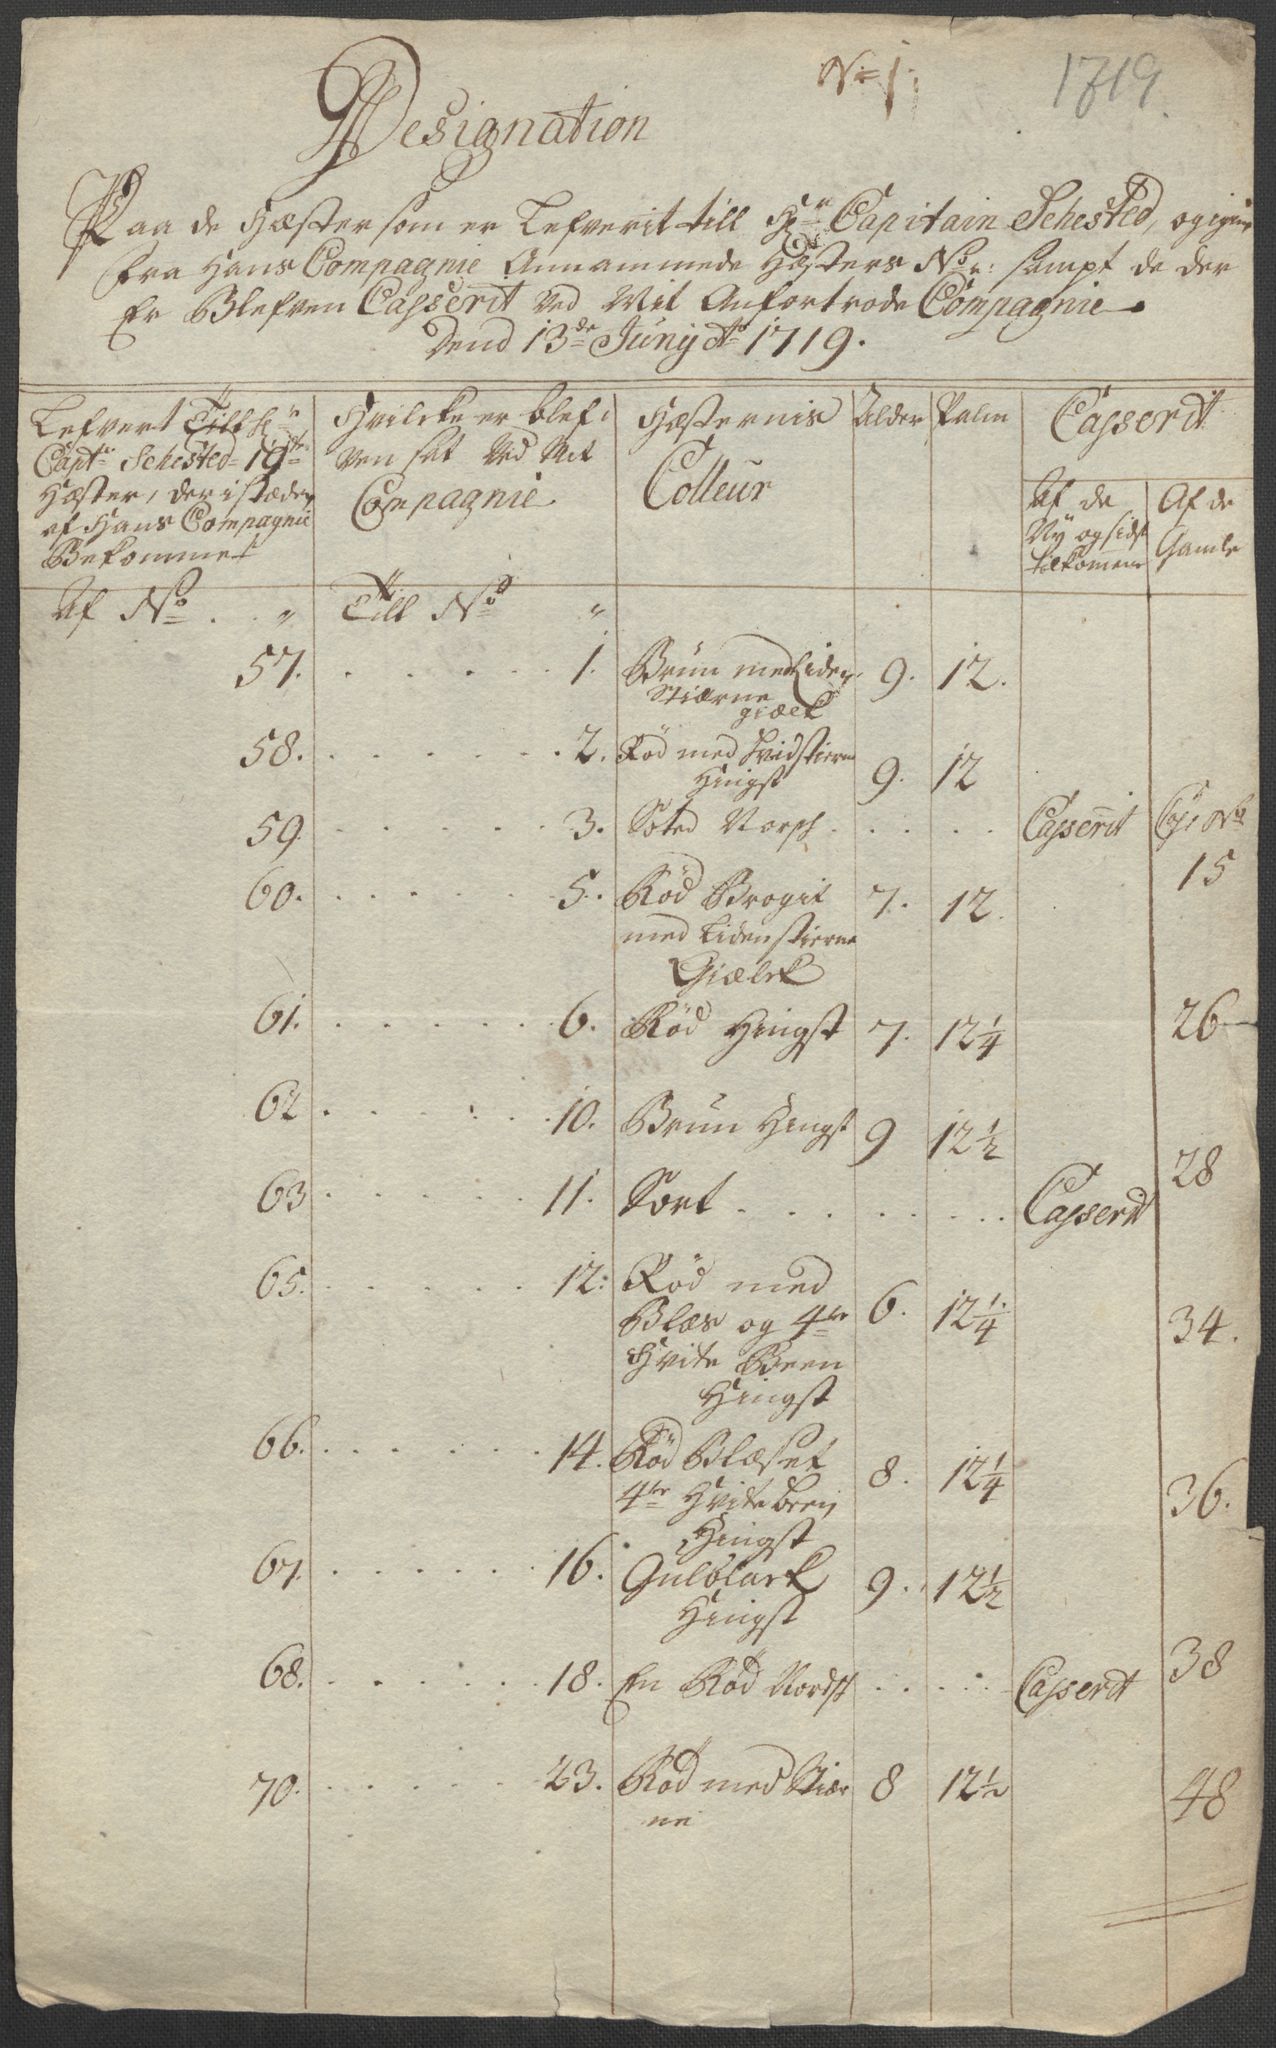 No 1.
1719
Designation
Paa de Hæster som er Lefverit till Hr Capitain Schested, og igien
fra Hans Compagnie Annammede Hæsters No: sampt de der
Er Blefven Casserit ved Mit Anfortrode Compagnie
Dend 13de Junij Ao 1719.
Lefvert Till Hr
Capt. Schested 19
Hæster, der i stæden
af Hans Compagnie
Bekommet
Hvilcke er blef:
ven sat ved Mit
Compagnie
Hæsternis
Colleur
Alder
Palm
Casserit
Af de
Ny og sidst
tilkomene
Af de
Gamle
Af No . . "
Till No "
57. . . . . . . 1. Brun med Liden 9. 12.
Stiærne
giælk
58. . . . . . . 2. Rød med hvid stierne 9. 12
Hingst
59 . . . . . . 3. Sted Norsk . . . . Casserit Cass No
15
60. . . . . . 5. Rød Brogit 7. 12.
med Liden stierne
Giælck
61. . . . . . 6. Rød Hingst 7. 12 1/4 26
62 . . . . . . 10. Brun Hingst 9 12 1/2
28
63 . . . . . . 11. Sort . . . . . . . Casserit
65. . . . . . 12: Rød med
Blæs og 4re 6. 12 1/4 34.
Hvite Been
Hingst
66. . . . . . 14. Rød Blæset 8. 12 1/4
4re Hvite been 36.
Hingst
67. . . . . . 16. Gulblack 9. 12 1/2
Hingst
68. . . . . . 18. En Rød Nordsk . . . . Casserit 38
70. . . . . . 23. Rød med Stiær 8 12 1/2 48
ne